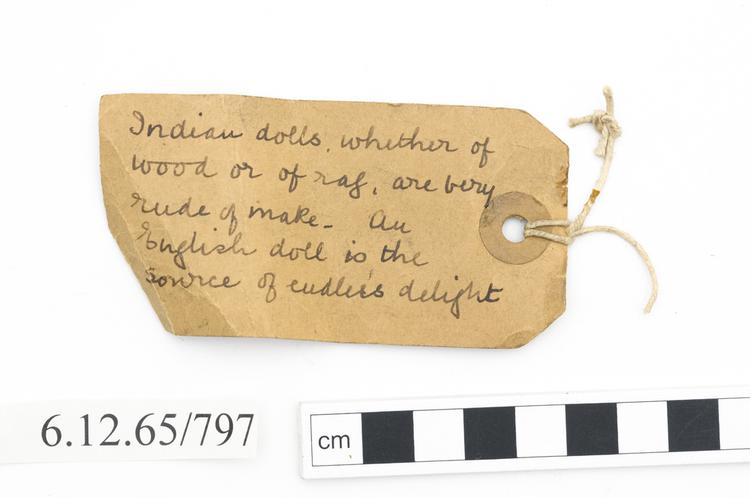 Indian dolls, whether of
wood or of rag, are very
rude of make - An
English doll is the
source of endless delight
6.12.65/797
cm